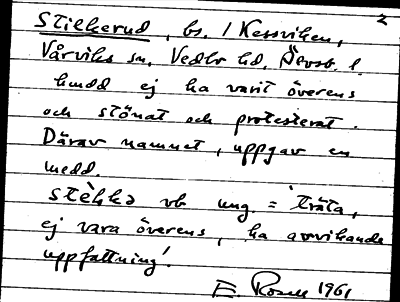 2
Stikkerud, bs. i Kessviken,
Vårviks sn, Vedbo hd.
hmdd ej ha varit överens
och stönat och protesterat.
Därav namnet, uppgav en
medd.
stèkka vb ung. = 'träta,
ej vara överens, ha avvikande
uppfattning'.
E. Rosell 1961